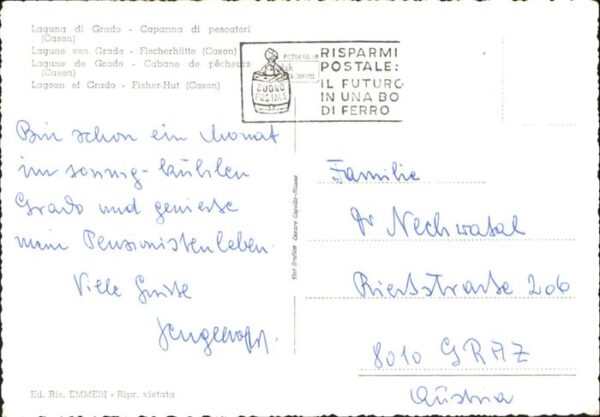 Laguna di Grado - Capanna di pescatori
(Cason)
Lagune von Grado - Fischerhütte (Cason)
Lagune de Grado - Cabane de pêcheurs
(Cason)
Lagoon of Grado - Fisher-Hut (Cason)
BUONO
POSTALE
RISPARMI
POSTALE:
IL FUTURO
IN UNA BO
DI FERRO
Bin schon ein Monat
im sonnig-kühlen
Grado und genieße
mein Pensionistenleben.
Viele Grüße
Familie
Dr Nechwatal
Riesstrasse 206
8010 GRAZ
Austria
Ed. Ris. EMMEBI - Ripr. vietata